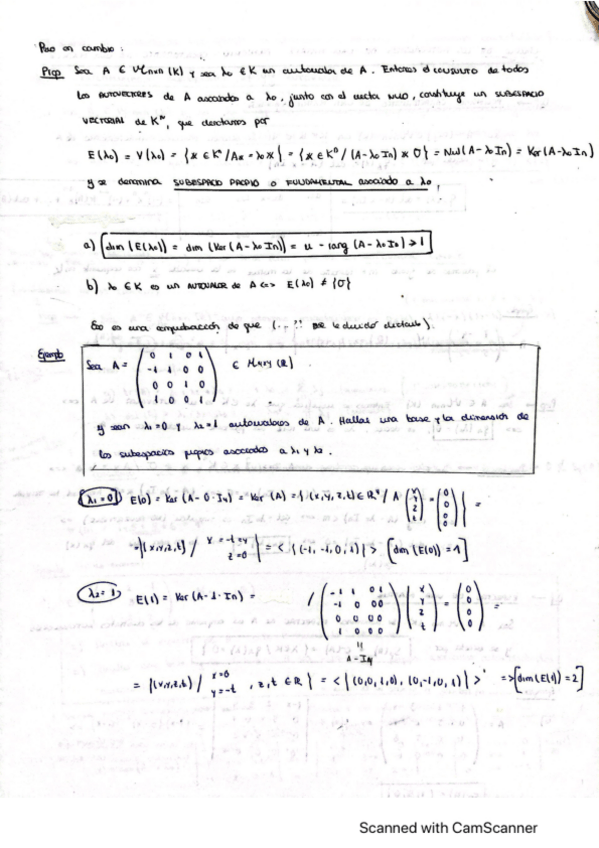 Paso en cambio:
Prop Sea A ∈ Mnxn (K) y sea λ0 ∈ K un autovalor de A. Entonces el conjunto de todos
los AUTOVECTORES de A asociados a λ0, junto con el vector nulo, constituye un SUBESPACIO
VECTORIAL de Kⁿ, que denotamos por
E(λ0) = V(λ0) = {x ∈ Kⁿ / Ax = λ0 x} = {x ∈ Kⁿ / (A-λ0 In) x = 0} = Nul(A-λ0 In) = Ker(A-λ0 In)
y se denomina SUBESPACIO PROPIO o FUNDAMENTAL asociado a λ0,
a) dim (E(λ0)) = dim (Ker (A-λ0 In)) = n - rang (A-λ0 In) ≥ 1
b) λ0 ∈ K es un AUTOVALOR de A <=> E(λ0) ≠ {0}
Eso es una comprobación de que (...
Ejemplo
Sea A = ( 0 1 0 1 / -1 1 0 0 / 0 0 1 0 / 1 0 0 1 ) ∈ M4x4 (R)
y sean λ1=0 y λ2=1 autovalores de A. Hallar una base y la dimensión de
los subespacios propios asociados a λ1 y λ2.
λ1=0 E(0) = Ker (A-0·In) = Ker (A) = { (x,y,z,t) ∈ R⁴ / A (x y z t) = (0 0 0 0) } =
= {(x,y,z,t) / x=-t=y z=0 } = < {(-1,-1,0,1)} > [dim (E(0)) = 1]
λ2=1 E(1) = Ker (A-1·In) = / ( -1 1 0 1 / -1 0 0 0 / 0 0 0 0 / 1 0 0 0 ) (x y z t) = (0 0 0 0) =
A-I4
= {(x,y,z,t) / x=0 y=-t , z,t ∈ R } = < {(0,0,1,0), (0,-1,0,1)} > => [dim (E(1)) = 2]
Scanned with CamScanner